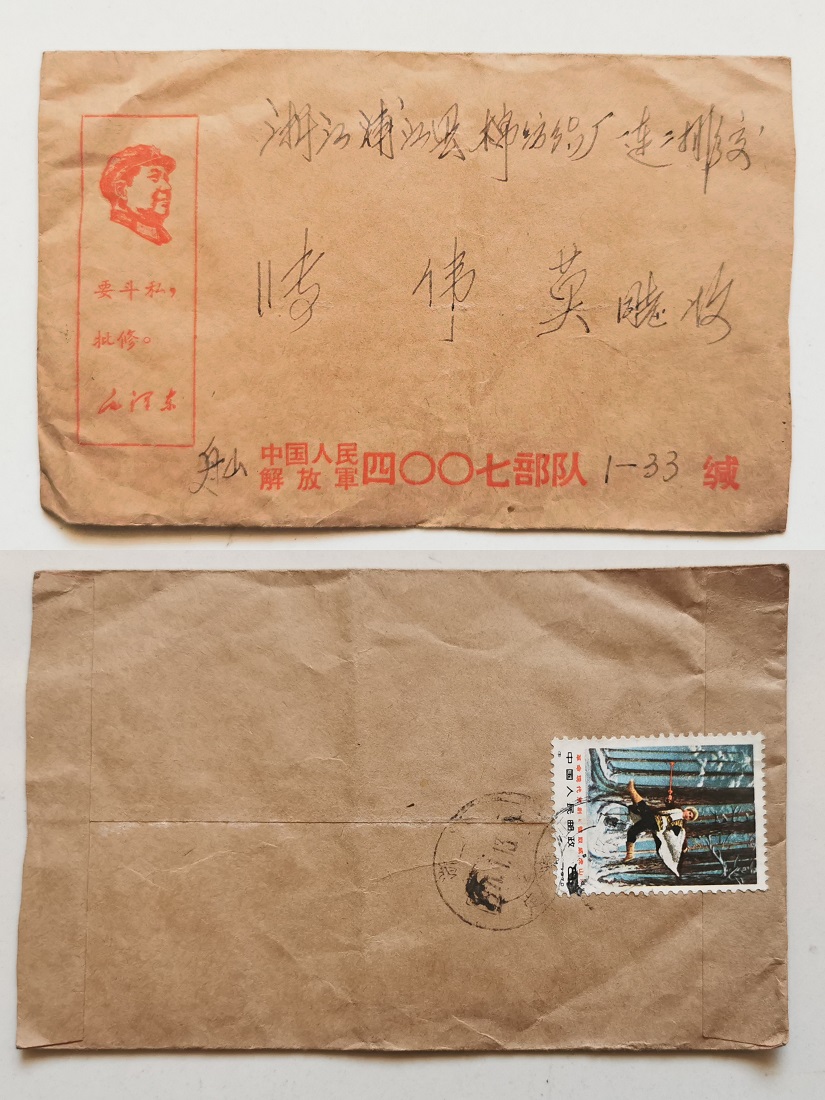 浙江浦江县棉纺织厂一连二排交
傅伟英 收
要斗私,
批修。
毛泽东
舟山 中国人民解放軍四〇〇七部队 1-33 缄
中国人民邮政